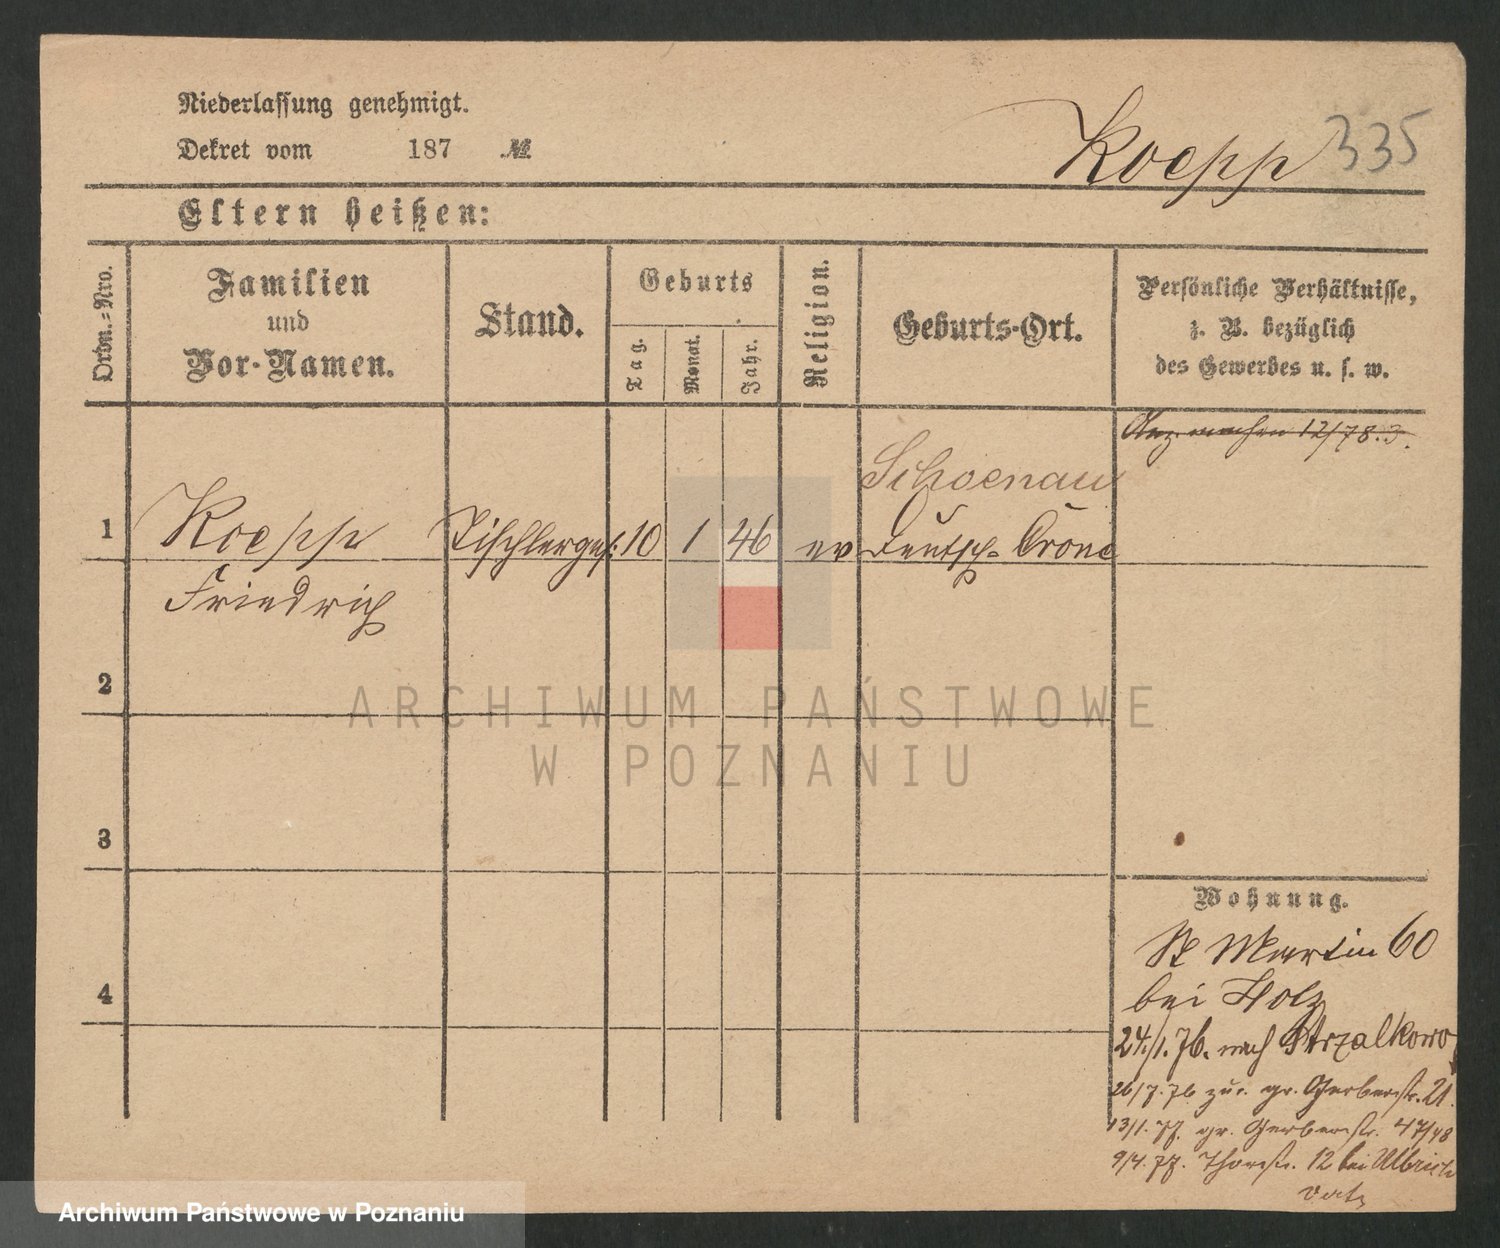 Niederlassung genehmigt.
Dekret vom 187 №
Koepp 335
Eltern heißen:
Ordn.=Nro.
Familien
und
Vor-Namen.
Stand.
Geburts
Tag.
Monat.
Jahr.
Religion.
Geburts-Ort.
Persönliche Verhältnisse,
z. B. bezüglich
des Gewerbes u. s. w.
12/78.3.
Schoenau
1 Koepp Tischlerges: 10 1 46 ev Deutsch-Crone
Friedrich
2
ARCHIWUM PAŃSTWOWE
W POZNANIU
3
Wohnung.
St Martin 60
bei Holz
4
24/1.76. nach Strzalkowo
26/7.76 zur. gr. Gerberstr. 21.
13/1.77. gr. Gerberstr. 47/48
9/4.77. Thorstr. 12 bei Ulbrich
Archiwum Państwowe w Poznaniu